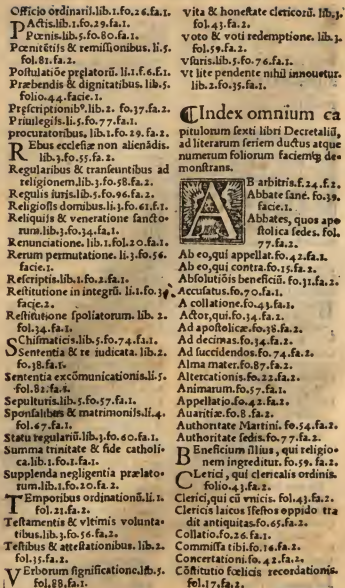 Officio ordinarii.lib.1.fo.26.fa.1.
PActis.lib.1.fo.29.fa.1.
Pœnis.lib.5.fo.80.fa.1.
Pœnitētiis & remissionibus. li.5.
fol.81.fa.2.
Postulatiōe prelatorū. li.1.f.6.f.1
Præbendis & dignitatibus. lib.5.
folio.44.facie.1.
Prescriptionib⁹.lib.2. fo.37.fa.2.
Priuilegis.li.5.fo.77.fa.1.
procuratoribus. lib.1.fo.29.fa.2.
REbus ecclesiæ non alienādis.
lib.3.fo.55.fa.2.
Regularibus & transeuntibus ad
religionem.lib.3.fo.58.fa.2.
Regulis iuris.lib.5.fo.96.fa.2.
Religiosis domibus.li.3.fo.61.fa.1.
Reliquijs & veneratione sancto-
rum.lib.3.fo.34.fa.1.
Renunciatione. lib.1.fol.20.fa.1.
Rerum permutatione. li.3.fo.56.
facie.1.
Rescriptis.lib.1.fo.2.fa.1.
Restitutione in integrū. li.1.fo.3
facie.2.
Restitutione spoliatorum. lib. 2.
fol.34.fa.1.
SChismaticis.lib.5.fo.74.fa.1.
Sententia & re iudicata. lib.2.
fo.38.fa.1.
Sententia excōmunicationis.li.5.
fol.82.fa.1.
Sepulturis.lib.5.fo.57.fa.1.
Sponsalibus & matrimonijs.li.4.
fol.67.fa.1.
Statu regulariū.lib.3.fo.60.fa.1.
Summa trinitate & fide catholi-
ca.lib.1.fo.1.fa.1.
Supplenda negligentia prælato-
rum.lib.1.fo.20.fa.2.
TEmporibus ordinationū. li.1.
fol.21.fa.2.
Testamentis & vltimis volunta-
tibus.lib.3.fo.56.fa.2.
Testibus & attestationibus. lib.2.
fo.35.fa.2.
VErborum significatione.lib.5.
fol.88.fa.1.
vita & honestate clericorū. lib.3.
fol.43.fa.2.
voto & voti redemptione. lib.3.
fol.59.fa.2.
vsuris.lib.5.fo.76.fa.1.
vt lite pendente nihil innouetur.
lib.2.fo.35.fa.1.
¶Index omnium ca
pitulorum sexti libri Decretaliū,
ad literarum seriem ductus atque
numerum foliorum faciemq; de-
monstrans.
AB arbitris.f.24.f.2.
Abbate sane. fo.39.
facie.1.
Abbates, quos apo
stolica sedes. fol.
77.fa.2.
Ab eo,qui appellat.fo.42.fa.1.
Ab eo,qui contra.fo.15.fa.2.
Absolutiōis beneficiū. fo.31.fa.2.
Accusatus.fo.70.fa.1.
A collatione.fo.43.fa.1.
Actor,qui.fo.34.fa.2.
Ad apostolicæ.fo.38.fa.2.
Ad decimas.fo.34.fa.2.
Ad succidendos.fo.74.fa.2.
Alma mater.fo.87.fa.2.
Altercationis.fo.22.fa.2.
Animarum.fo.57.fa.1.
Appellatio.fo.42.fa.2.
Auaritiæ.fo.8.fa.2.
Authoritate Martini. fo.54.fa.2.
Authoritate sedis.fo.77.fa.2.
BEneficium illius, qui religio-
nem ingreditur.fo.59. fa.2.
CLerici, qui clericalis ordinis.
folio.43.fa.2.
Clerici,qui cū vnicis. fol.43.fa.2.
Clericis laicos iſfestos oppido tra
dit antiquitas.fo.65.fa.2.
Collatio.fo.26.fa.1.
Commissa tibi.fo.16.fa.2.
Concertationi.fo.42.fa.2.
Cōstitutio fœlicis recordationis.
fol.17.fa.2.